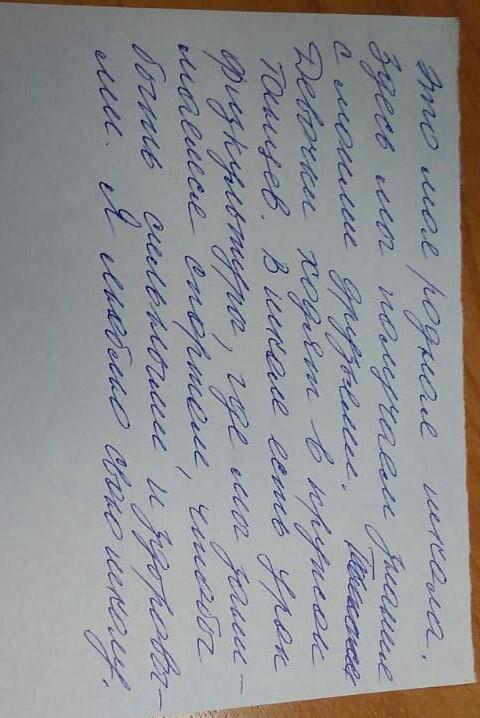 Это моя родная школа.
Здесь мы получаем знание
с моими друзьями.
Девочки ходят в кружок
танцев. В школе есть урок
физкультура, где мы зани-
маемся спортом, чтобы
быть сильными и здоровы-
ми. Я люблю свою школу.